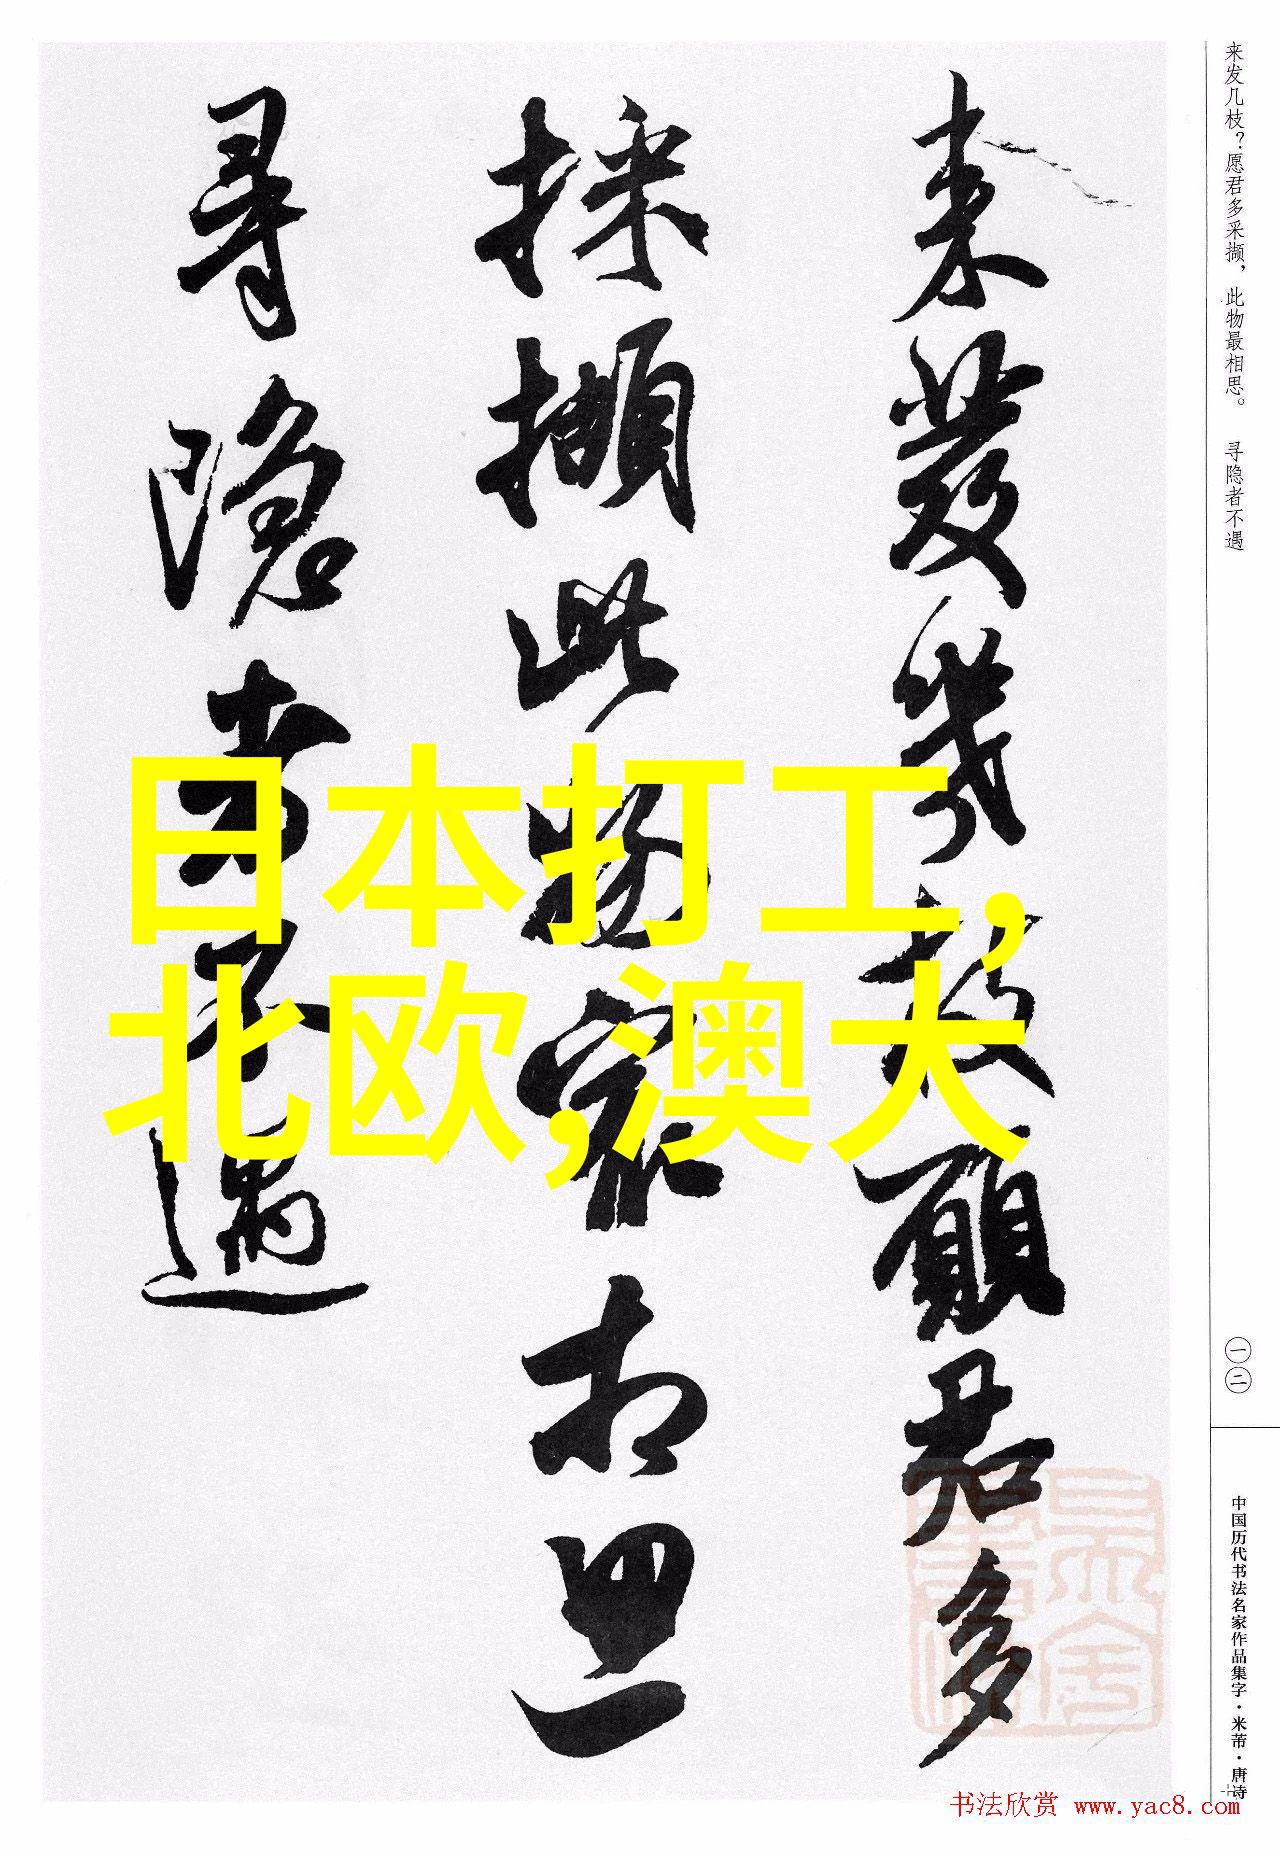 来发几枝？愿君多采撷，此物最相思。 寻隐者不遇
来發幾枝願君多
採擷此物最相思
尋隱者不遇
日本打工,
北欧,澳大
一二
中国历代书法名家作品集字·米芾·唐诗
书法欣赏 www.yac8.com